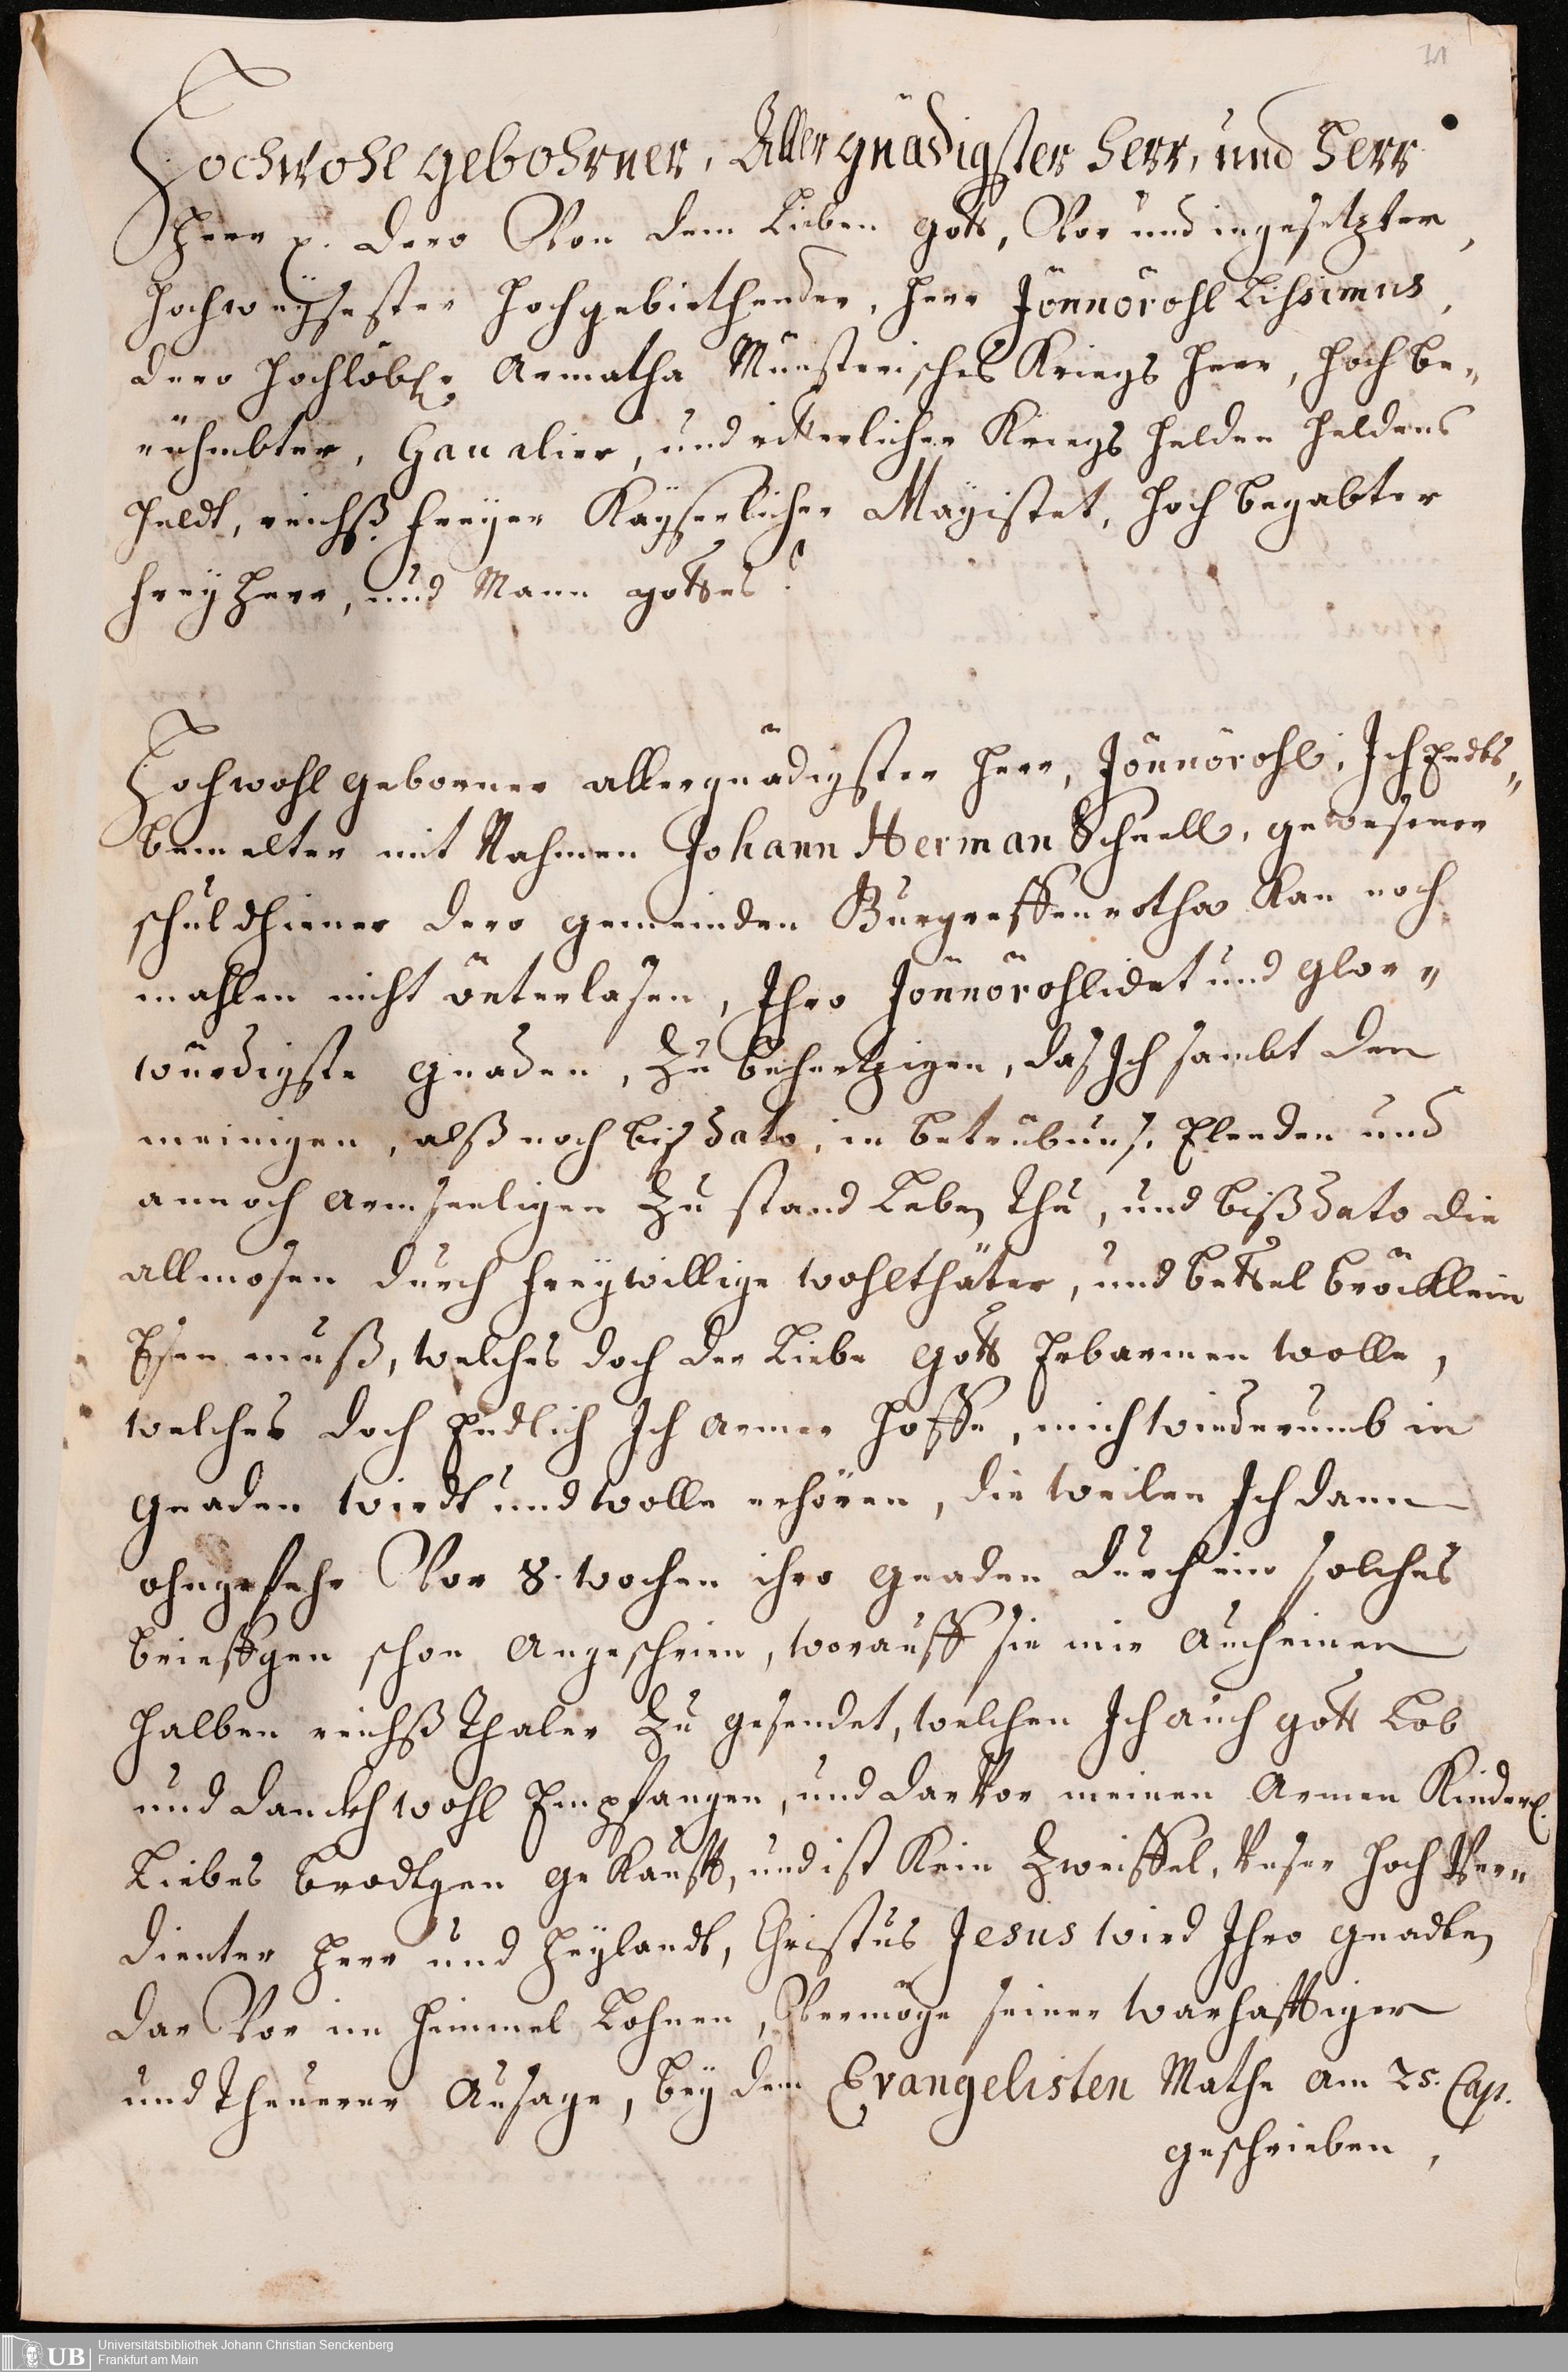 71
Hochwohl gebohrner, Aller gnädigster Herr, und Herr
Herr p. dero Von dem Lieben gott, Vor und ingesetzter,
Hochweÿsester Hochgebiethender, Herr Jönnöröhl Lissimus,
dero Hochlöbl. Armatha Münsterisches Kriegs Herr, Hoch be„
rühmbter, Gaualier, und ritterlicher Kriegs Helden Heldens
Heldt, reichß freÿer Kaÿserlicher Maÿistet, Hoch begabter
freÿ Herr, und Mann gottes!
Hochwohl geborner allergnädigster Herr, Jönnöröhl, Ich Endts„
bemelter mit Nahmen Johann Herman Schnell, gewesener
schüldhiener dero gemeinden Bürgreffenrotha Kan noch
mahlen nicht ünterlasen, Ihro Jönnöröhlidet und glor„
würdigste gnaden, Zu behertzigen, das Ich sambt den
meinigen, alß noch biß dato, in betrübnus, Elenden und
annoch armseeligen Zu stand Leben thu, und biß dato die
allmosen durch freÿwillige wohlthäter, und bettel bröcklein
Esen muß, welches doch der Liebe gott Erbarmen wolle,
welches doch Endlich Ich armer Hoffe, mich wiederumb in
gnaden wirdt und wolle erhören, die weilen Ich dann
ohngefehr Vor 8. wochen ihro gnaden durch ein solches
brieffgen schon angeschrien, worauff sie mir auch einen
Halben reichß thaler Zu gesendet, welchen Ich auch gott Lob
und danckh wohl Empfangen, und darVor meinen armen Kinderl.
Liebes brodtgen ge Kaufft, und ist Kein Zweiffel, Unser Hoch Ver„
dienter Herr und Heÿlandt, Christus Jesus wird Ihro gnadten
dar Vor im Himmel Lohnen, Vermöge seiner warhafftiger
und theuerer Ausage, beÿ dem Evangelisten Mathe am 25. Cap.
geschrieben,
UB Universitätsbibliothek Johann Christian Senckenberg
Frankfurt am Main